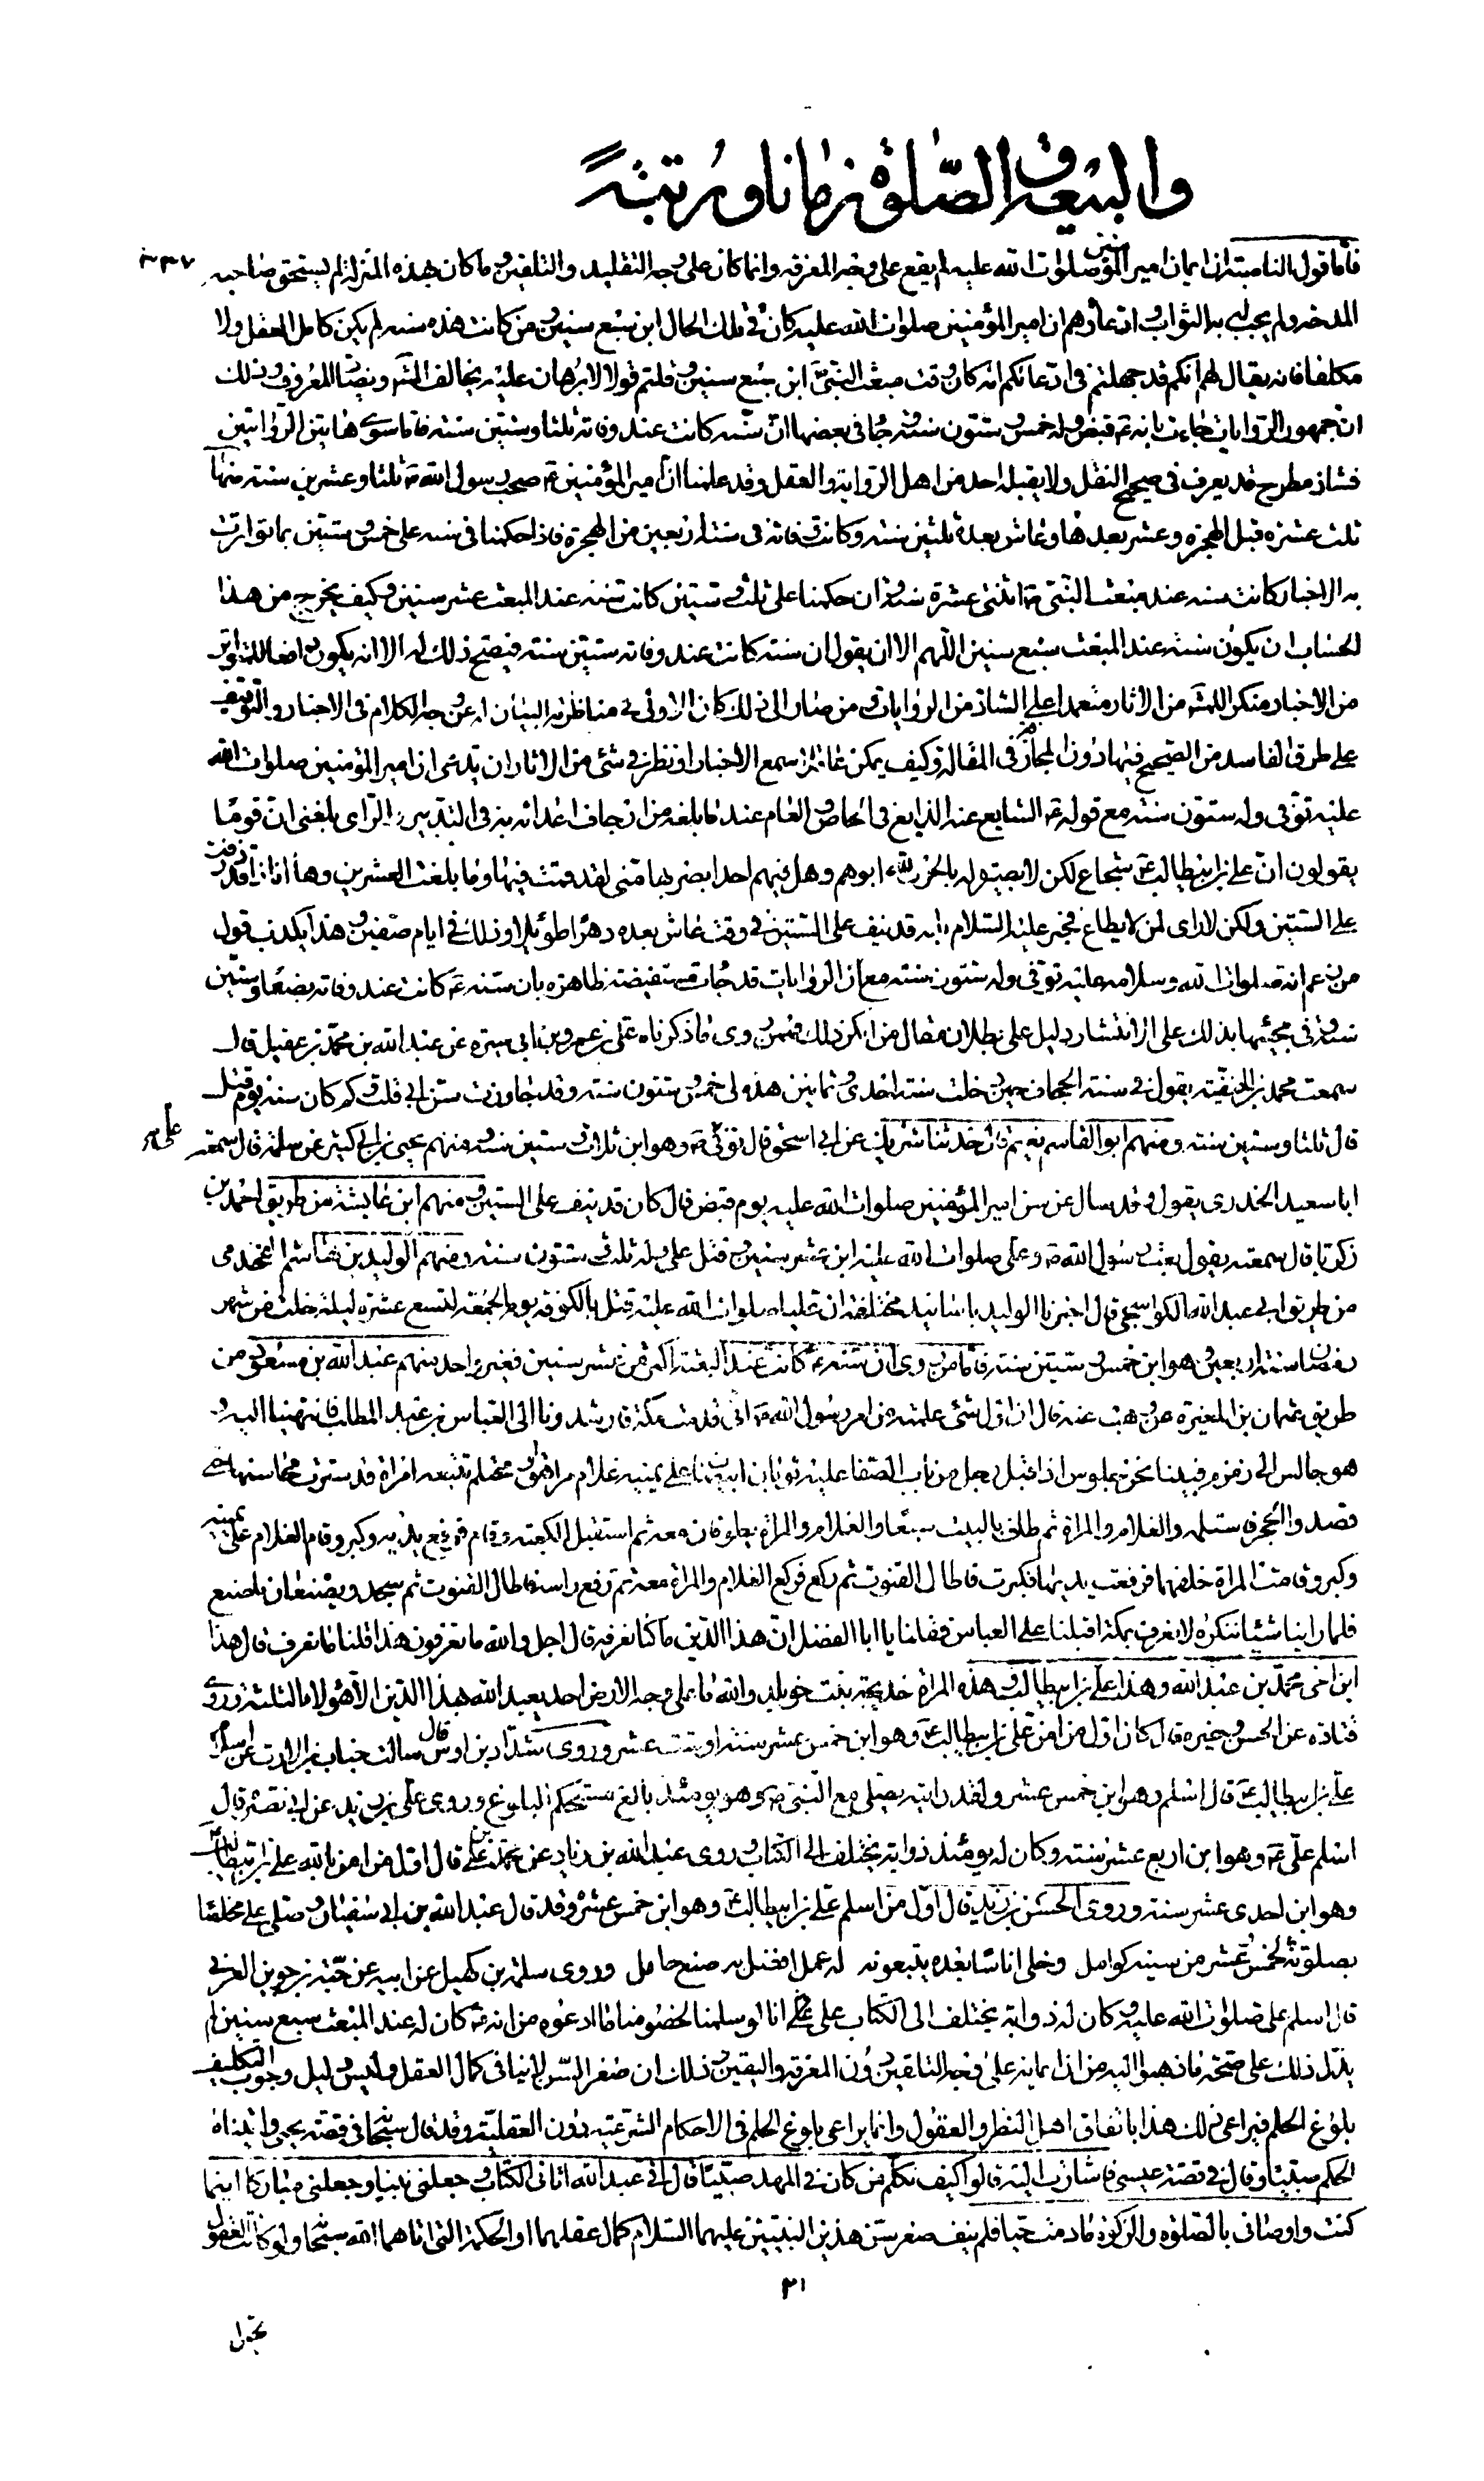 والبيعة والصلوة زمانا ورتبة
فاما قول الناصبة ان ايمان امير المؤمنين صلوات الله عليه لم يقع على وجه المعرفة وانما كان على وجه التقليد والتلقين وما كان بهذه المنزلة لم يستحق صاحبه
المدحة ولم يجب له به الثواب وادعاؤهم ان امير المؤمنين صلوات الله عليه كان في تلك الحال ابن سبع سنين ومن كانت هذه سنه لم يكن كامل العقل ولا
مكلفا فانه يقال لهم انكم قد جهلتم في ادعائكم انه كان وقت مبعث النبي ص ابن سبع سنين وقلتم قولا لا برهان عليه يخالف المشهور ويضاد المعروف وذلك
ان جمهور الروايات جاءت بانه ع قبض وله خمس وستون سنة وجاء في بعضها ان سنه كانت عند وفاته ثلثا وستين سنة فاما سوى هاتين الروايتين
فشاذ مطرح قد يعرف في صحيح النقل ولا يقبله احد من اهل الرواية والعقل وقد علمنا ان امير المؤمنين ع صحب رسول الله ص ثلثا وعشرين سنة منها
ثلث عشرة قبل الهجرة وعشر بعدها وعاش بعده ثلثين سنة وكانت وفاته في سنة اربعين من الهجرة فاذا حكمنا في سنه على خمس وستين بما تواترت
به الاخبار كانت سنه عند مبعث النبي ص اثنتى عشرة سنة وان حكمنا على ثلث وستين كانت سنه عند المبعث عشر سنين وكيف يخرج من هذا
الحساب ان يكون سنه عند المبعث سبع سنين اللهم الا ان يقول ان سنه كانت عند وفاته ستين سنة فيصح ذلك له الا انه يكون دافعا للمتواتر
من الاخبار منكرا للمشهور من الاثار معتمدا على الشاذ من الروايات ومن صار الى ذلك كان الاولى في مناظرته البيان له عن وجه الكلام في الاخبار والتوقيف
على طرق الفاسد من الصحيح فيها دون المجازفة في المقالة وكيف يمكن عاقلا سمع الاخبار او نظر في شئ من الاثار ان يدعى ان امير المؤمنين صلوات الله
عليه توفى وله ستون سنة مع قوله ع الشايع عنه الذايع في الخاص والعام عند ما بلغه من ارجاف اعدائه به في التدبير والراى بلغنى ان قوما
يقولون ان على بن ابيطالب ع شجاع لكن لا بصيرة له بالحرب لله ابوهم وهل فيهم احد ابصر بها منى لقد قمت فيها وما بلغت العشرين وها انا ذا قد ذرفت
على الستين ولكن لا راى لمن لا يطاع فخبر عليه السلام بانه قد نيف على الستين في وقت عاش بعده دهرا طويلا وذلك في ايام صفين وهذا يكذب قول
من زعم انه صلوات الله وسلامه عليه توفى وله ستون سنة مع ان الروايات قد جاءت مستفيضة ظاهرة بان سنه ع كانت عند وفاته بضعا وستين
سنة وفي مجيئها بذلك على الانتشار دليل على بطلان مقال من انكر ذلك فممن روى ما ذكرناه على بن عمرو بن ابي سبرة عن عبد الله بن محمد بن عقيل قال
سمعت محمد بن الحنفية يقول في سنة الجحاف حين دخلت سنة احدى وثمانين هذه لى خمس وستون سنة وقد جاوزت سن ابى قلت وكم كان سنه يوم قتل
قال ثلثا وستين سنة ومنهم ابو القاسم نعيم قال حدثنا شريك عن ابى اسحق قال توفى ع وهو ابن ثلاث وستين سنة ومنهم يحيى بن ابى كثير عن سلمة قال سمعت
ابا سعيد الخدرى يقول وقد سال عن سن امير المؤمنين صلوات الله عليه يوم قبض قال كان قد نيف على الستين ومنهم ابن عايشة من طريق احمد بن
زكريا قال سمعته يقول بعث رسول الله ص وعلى صلوات الله عليه ابن عشر سنين وقتل على وله ثلث وستون سنة ومنهم الوليد بن هاشم المخذمى
من طريق ابى عبد الله الكواسجى قال اخبرنا الوليد باسانيد مختلفة ان عليا صلوات الله عليه قتل بالكوفة يوم الجمعة لتسع عشرة ليلة خلت من شهر
رمضان سنة اربعين وهو ابن خمس وستين سنة فاما من روى ان سنه ع كانت عند البعثة اكثر من عشر سنين فغير واحد منهم عبد الله بن مسعود من
طريق عثمان بن المغيرة عن وهب عنه قال ان اول شئ علمته من امر رسول الله ص انى قدمت مكة فارشدونا الى العباس بن عبد المطلب فانتهينا اليه و
هو جالس الى زمزم فبينا نحن جلوس اذ اقبل رجل من باب الصفا عليه ثوبان ابيضان على يمينه غلام مراهق او محتلم تتبعه امراة قد سترت محاسنها حتى
قصدوا الحجر فاستلمه والغلام والمراة ثم طاف بالبيت سبعا والغلام والمراة يطوفان معه ثم استقبل الكعبة وقام فرفع يديه وكبر وقام الغلام على يمينه
وكبر وقامت المراة خلفهما فرفعت يديها فكبرت فاطال القنوت ثم ركع فركع الغلام والمراة معه ثم رفع راسه فاطال القنوت ثم سجد ويصنعان ما صنع
فلما راينا شيئا ننكره لا نعرف بمكة اقبلنا على العباس فقلنا يا ابا الفضل ان هذا الدين ما كنا نعرفه قال اجل والله ما تعرفون هذا قلنا ما نعرف قال هذا
ابن اخى محمد بن عبد الله وهذا على بن ابيطالب وهذه المراة خديجة بنت خويلد والله ما على وجه الارض احد يعبد الله بهذا الدين الا هؤلاء الثلثة وروى
قتادة عن الحسن وغيره قال كان اول من امن على بن ابيطالب ع وهو ابن خمس عشر سنة او ست عشر وروى شداد بن اوس قال سالت خباب بن الارت عن اسلام
على بن ابيطالب ع قال اسلم وهو ابن خمس عشر ولقد رايته يصلى مع النبى ص وهو يومئذ بالغ مستحكم البلوغ وروى على بن زيد عن ابى نضرة قال
اسلم على ع وهو ابن اربع عشر سنة وكان له يومئذ ذوابة يختلف الى الكتاب وروى عبد الله بن زياد عن محمد بن على قال اول من امن بالله على بن ابيطالب
وهو ابن احدى عشر سنة وروى الحسن بن زيد قال اول من اسلم على بن ابيطالب ع وهو ابن خمس عشر وقد قال عبد الله بن ابى سفيان وصلى على مخلصا
بصلوته لخمس وعشر من سنيه كوامل وخلى اناسا بعده يتبعونه له عمل افضل به صنع عامل وروى سلمة بن كهيل عن ابيه عن حبة بن جوين العرنى
قال اسلم على صلوات الله عليه وكان له ذوابة يختلف الى الكتاب على انا لو سلمنا لخصومنا ما ادعوه من انه ع كان له عند المبعث سبع سنين لم
يدل ذلك على صحة ما ذهبوا اليه من ان ايمانه على وجه التلقين دون المعرفة واليقين وذلك ان صغر السن لا ينافى كمال العقل وليس دليل وجوب التكليف
بلوغ الحلم فيراعى ذلك هذا باتفاق اهل النظر والعقول وانما يراعى بلوغ الحلم فى الاحكام الشرعية دون العقلية وقد قال سبحانه فى قصة يحيى واتيناه
الحكم صبيا وقال فى قصة عيسى فاشارت اليه قالوا كيف نكلم من كان فى المهد صبيا قال انى عبد الله اتانى الكتاب وجعلنى نبيا وجعلنى مباركا اينما
كنت واوصانى بالصلوة والزكوة ما دمت حيا فلم ينف صغر سن هذين النبيين عليهما السلام كمال عقلهما او الحكمة التى اتاهما الله سبحانه ولو كانت العقول
٣١